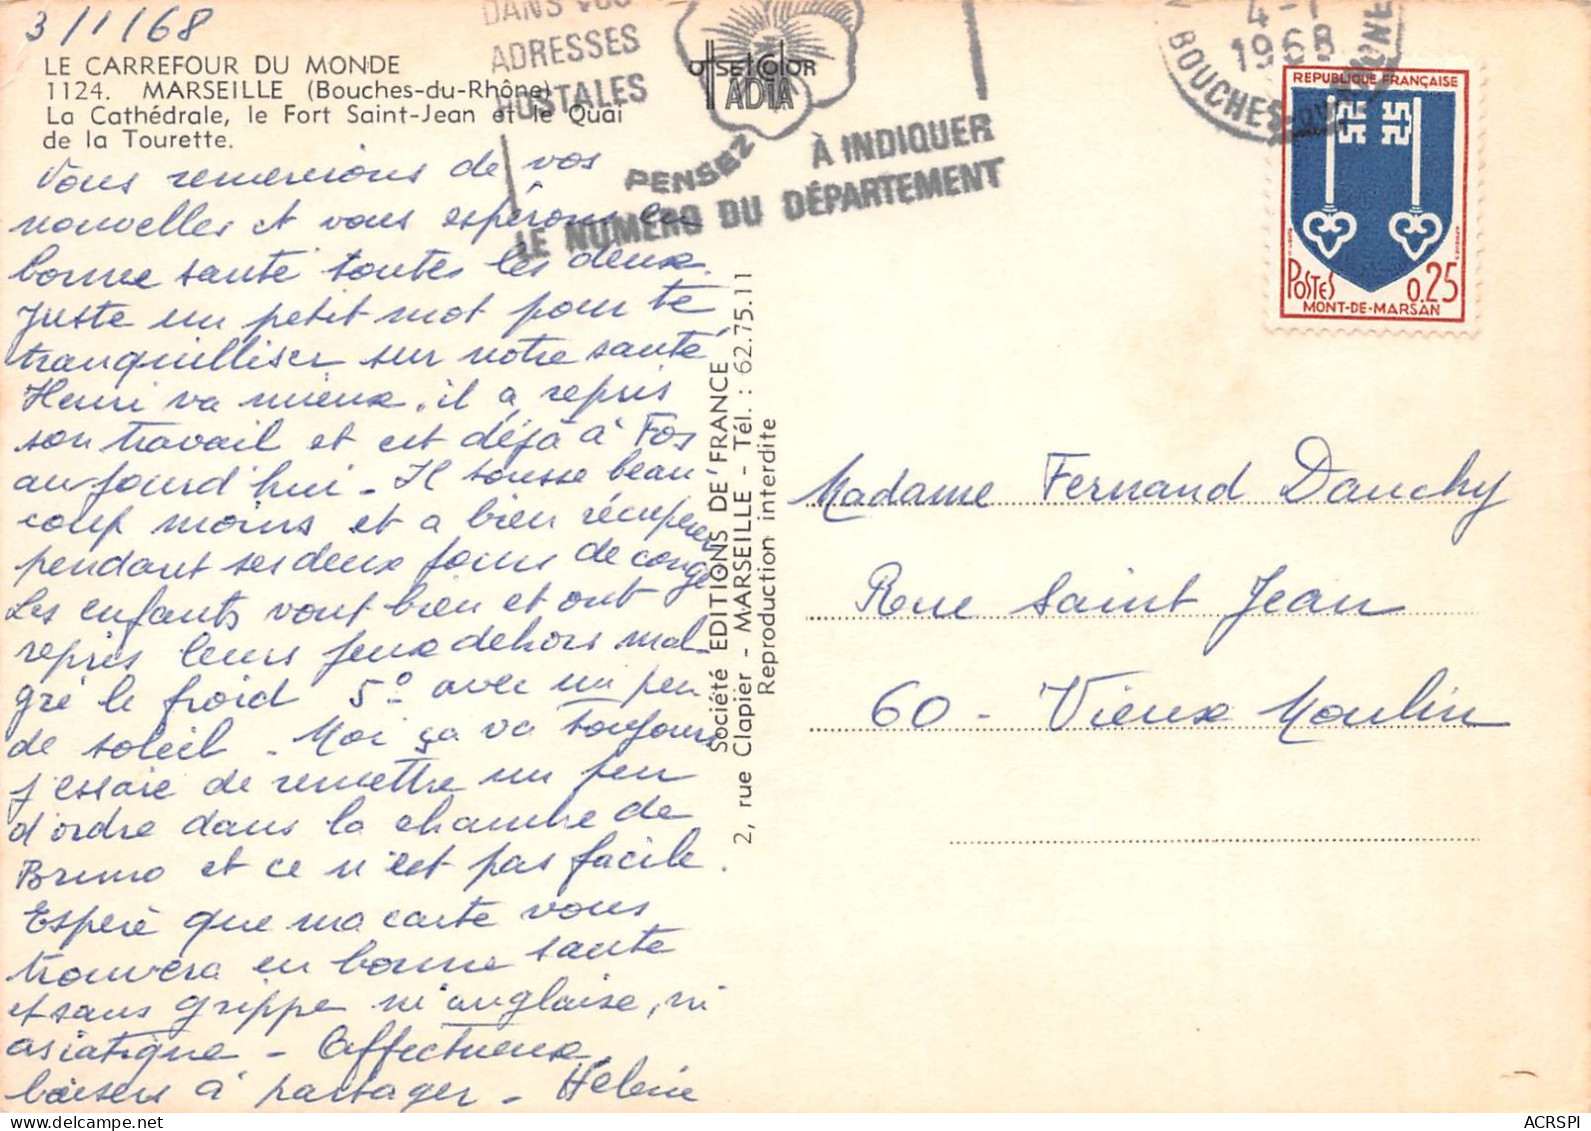 3/1/68
LE CARREFOUR DU MONDE
1124. MARSEILLE (Bouches-du-Rhône)
La Cathédrale, le Fort Saint-Jean et le Quai
de la Tourette.
Vous remercions de vos
nouvelles et vous espérons en
bonne santé toutes les deux.
Juste un petit mot pour te
tranquilliser sur notre santé
Henri va mieux, il a repris
son travail et est déjà à Fos
aujourd'hui - Il tousse beau
coup moins et a bien récupéré
pendant ses deux jours de congé
Les enfants vont bien et ont
repris leurs jeux dehors mal-
gré le froid 5° avec un peu
de soleil - Moi ça va toujours
j'essaie de remettre un peu
d'ordre dans la chambre de
Bruno et ce n'est pas facile.
Espère que ma carte vous
trouvera en bonne santé
et sans grippe ni anglaise, ni
asiatique - Affectueux
baisers à partager - Hélène
DANS VOS
ADRESSES
POSTALES
PENSEZ
À INDIQUER
LE NUMÉRO DU DÉPARTEMENT
OFFSETCOLOR
ADIA
4-1
1968
BOUCHES-DU-RHONE
REPUBLIQUE FRANÇAISE
POSTES 0,25
MONT-DE-MARSAN
Société EDITIONS DE FRANCE
2, rue Clapier - MARSEILLE - Tél. : 62.75.11
Reproduction interdite
Madame Fernand Dauchy
Rue Saint Jean
60 - Vieux Moulin
ACRSPI